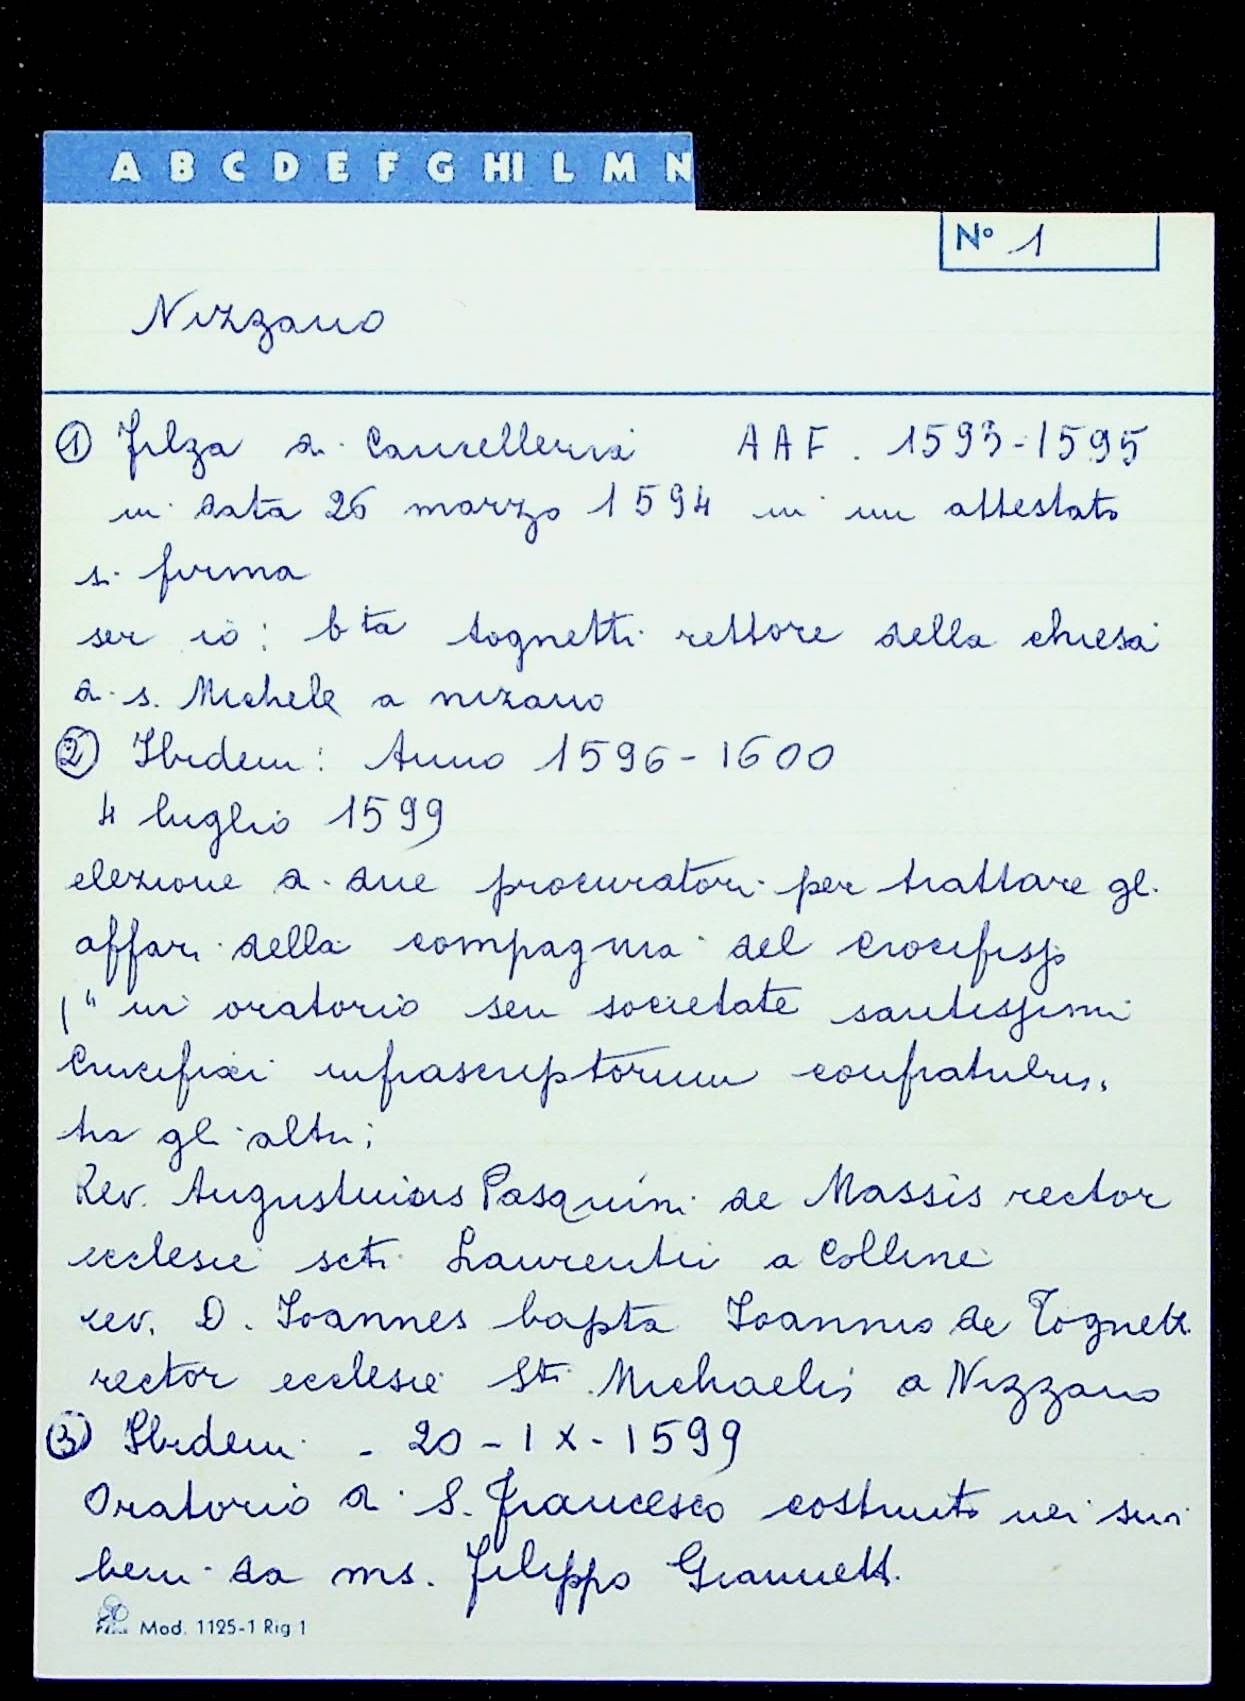 A B C D E F G HI L M N
N° 1
Nizzano
① Filza di Cancelleria AAF. 1593-1595
in data 26 marzo 1594 in un attestato
si firma
ser io: bta tognetti rettore della chiesa
di s. Michele a nizano
② Ibidem: Anno 1596-1600
4 luglio 1599
elezione di due procuratori per trattare gli
affari della compagnia del Crocifisso
(" in oratorio seu societate santissimi
Crucifixi infrascriptorum confratribus.
tra gli altri:
Rev. Augustinus Pasquini de Massis rector
ecclesie scti Laurentii a Colline
rev. D. Ioannes bapta Ioannis de Tognetti
rector ecclesie Sti Michaelis a Nizzano
③ Ibidem - 20-IX-1599
Oratorio di S. Francesco costruito nei suoi
beni da ms. Filippo Giannetti.
Mod. 1125-1 Rig 1